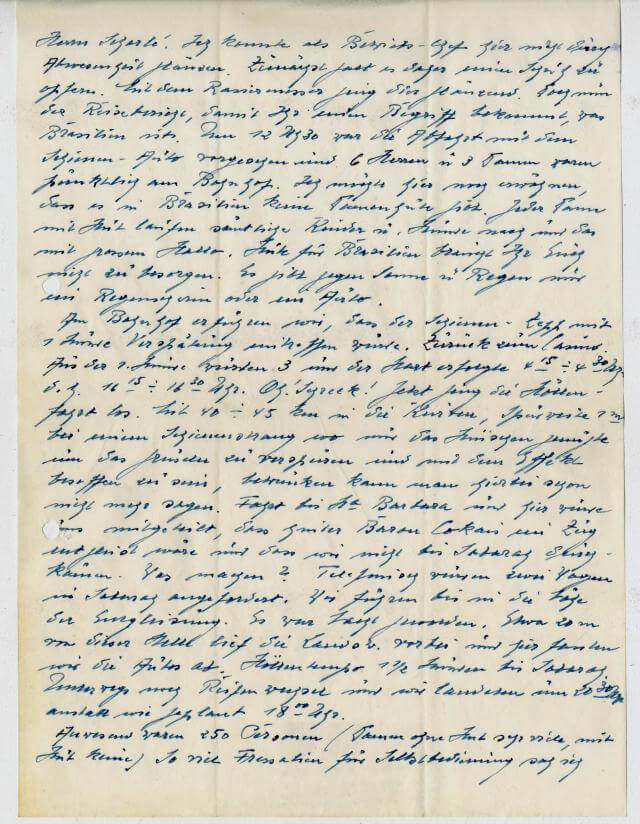 Herrn Scharlé. Ich konnte als Betriebs-Chef hier nicht durch
Abwesenheit glänzen. Zunächst galt es daher einen Scheich zu
opfern. Mit dem Rasiermesser ging dies glänzend. Doch nun
der Reisebericht, damit Ihr einen Begriff bekommt, was
Brasilien ist. Um 12 Uhr 30 war die Abfahrt mit dem
Schienen-Auto vorgesehen und 6 Herren u 3 Damen waren
pünktlich am Bahnhof. Ich möchte hier noch erwähnen,
dass es in Brasilien keine Damenhüte gibt. Jeder Dame
mit Hut laufen sämtliche Kinder u. Hunde nach und das
mit grossem Hallo. Hüte für Brasilien braucht Ihr Euch
nicht zu besorgen. Es gibt gegen Sonne u Regen nur
ein Regenschirm oder ein Auto.
Am Bahnhof erfuhren wir, dass der Schienen-Zepp mit
1 Stunde Verspätung eintreffen würde. Zurück zum Casino.
Aus der 1. Stunde wurden 3 und der Start erfolgte 4 15 ÷ 4 30 Uhr
d. h. 16 15 ÷ 16 30 Uhr. Oh! Schreck! Jetzt ging die Höllen-
fahrt los. Mit 40 ÷ 45 km in die Kurven, Spurweite 1 m
bei einem Schienenstrang wo nur das Hinsehen genügte
um das Gruseln zu verspüren und mit dem Effekt
besoffen zu sein, betrunken kann man hierbei schon
nicht mehr sagen. Fahrt bis Sta Barbara und hier wurde
uns mitgeteilt, dass hinter Baran Cockais ein Zug
entgleist wäre und dass wir nicht bis Sabarag durch-
kämen. Was machen? Telefonisch wurden zwei Wagen
in Sabarag angefordert. Wir fuhren bis in die Höhe
der Entgleisung. Es war Nacht geworden. Etwa 20 m
von dieser Stelle lief die Landstr. vorbei und hier fanden
wir die Autos ab. Höllentempo 1 1/2 Stunden bis Sabarag
Unterwegs noch Reifenwechsel und wir landeten um 20 30 Uhr
anstatt wie geplant 18 00 Uhr.
Anwesend waren 250 Personen (Damen ohne Hut sehr viele, mit
Hut keine) So viel Fressalien für Selbstbedienung sah ich